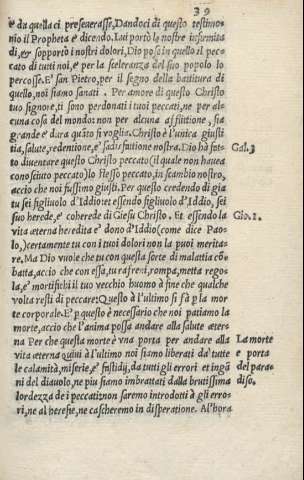 39
e da quella ci preseruasse, Dandoci di questo testimo-
nio il Propheta e dicendo. Lui portò le nostre infermita
di, & sopportò i nostri dolori, Dio pose in quello il pec
cato di tutti noi, e per la sceleranza del suo popolo lo
percosse. E' san Pietro, per il segno della battitura di
quello, noi fiamo sanati. Per amore di questo Christo
tuo signore, ti sono perdonati i tuoi peccati, ne per al-
cuna cosa del mondo: non per alcuna affiittione, sia
grande e' dura quāto si voglia. Christo è l'unica giusti
tia, salute, redentione, e' sadisfattione nostra. Dio hà fat-
to diuentare questo Christo peccato (il quale non hauea
conosciuto peccato) lo stesso peccato, in scambio nostro,
accio che noi fussimo giusti. Per questo credendo di gia
tu sei figliuolo d'Iddio: et essendo figliuolo d'Iddio, sei
suo herede, e' coherede di Giesu Christo. Et essendo la
vita æterna heredita e' dono d'Iddio (come dice Pao-
lo,) certamente tu con i tuoi dolori non la puoi merita-
re. Ma Dio vuole che tu con questa sorte di malattia cō-
batta, accio che con essa, tu rafreni, rompa, metta rego-
la, e' mortifichi il tuo vecchio huomo à fine che qualche
volta resti di peccare: Questo à l'ultimo si fà p la mor
te corporale. E' p questo è necessario che noi patiamo la
morte, accio che l'anima possa andare alla salute æter-
na Per che questa morte è vna porta per andare alla
vita æterna quiui à l'ultimo noi siamo liberati da' tutte
le calamità, miserie, e' fastidij, da tutti gli errori et ingā
ni del diauolo, ne piu siamo imbrattati dalla bruttissima
lordezza de i peccati: non saremo introdotti à gli erro-
ri, ne al heresie, ne cascheremo in disperatione. Al'hora
Gal. 3
Gio. 1.
La morte
e porta
del para-
diso.